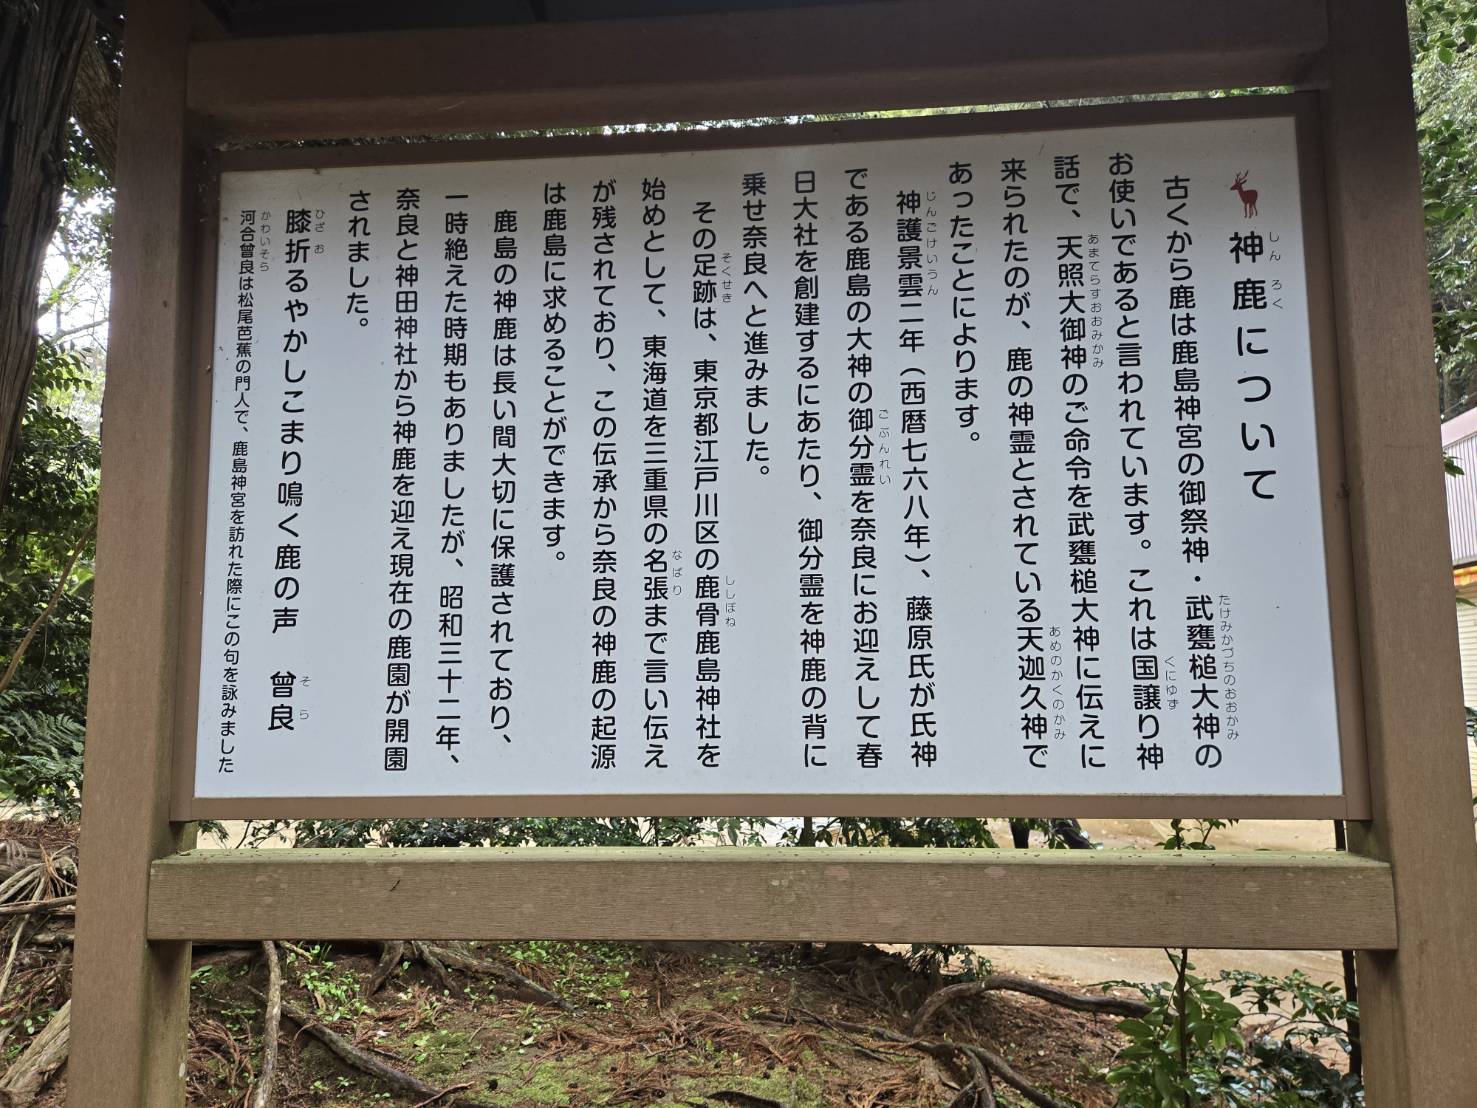 神鹿について
しんろく
古くから鹿は鹿島神宮の御祭神・武甕槌大神の
たけみかづちのおおかみ
お使いであると言われています。これは国譲り神
くにゆず
話で、天照大御神のご命令を武甕槌大神に伝えに
あまてらすおおみかみ
来られたのが、鹿の神霊とされている天迦久神で
あめのかくのかみ
あったことによります。
神護景雲二年（西暦七六八年）、藤原氏が氏神
じんごけいうん
である鹿島の大神の御分霊を奈良にお迎えして春
ごぶんれい
日大社を創建するにあたり、御分霊を神鹿の背に
乗せ奈良へと進みました。
その足跡は、東京都江戸川区の鹿骨鹿島神社を
そくせき
ししぼね
始めとして、東海道を三重県の名張まで言い伝え
なばり
が残されており、この伝承から奈良の神鹿の起源
は鹿島に求めることができます。
鹿島の神鹿は長い間大切に保護されており、
一時絶えた時期もありましたが、昭和三十二年、
奈良と神田神社から神鹿を迎え現在の鹿園が開園
されました。
膝折るやかしこまり鳴く鹿の声　曾良
ひざお
そら
河合曾良は松尾芭蕉の門人で、鹿島神宮を訪れた際にこの句を詠みました
かわいそら